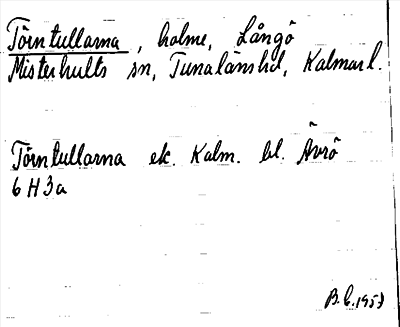 Törntullarna, holme, Långö
Misterhults sn, Tunalänshd, Kalmar l.
Törntullarna ek. Kalm. bl. Ävrö
6 H 3a
B.C. 1953